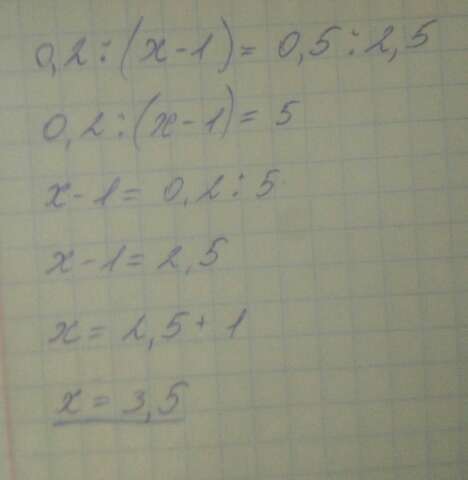 0,2 : (x - 1) = 0,5 : 2,5
0,2 : (x - 1) = 5
x - 1 = 0,2 : 5
x - 1 = 2,5
x = 2,5 + 1
x = 3,5